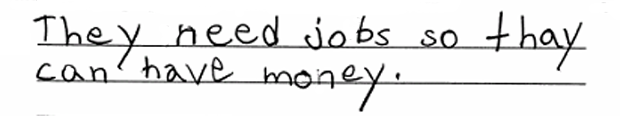 They need jobs so thay
can have money.